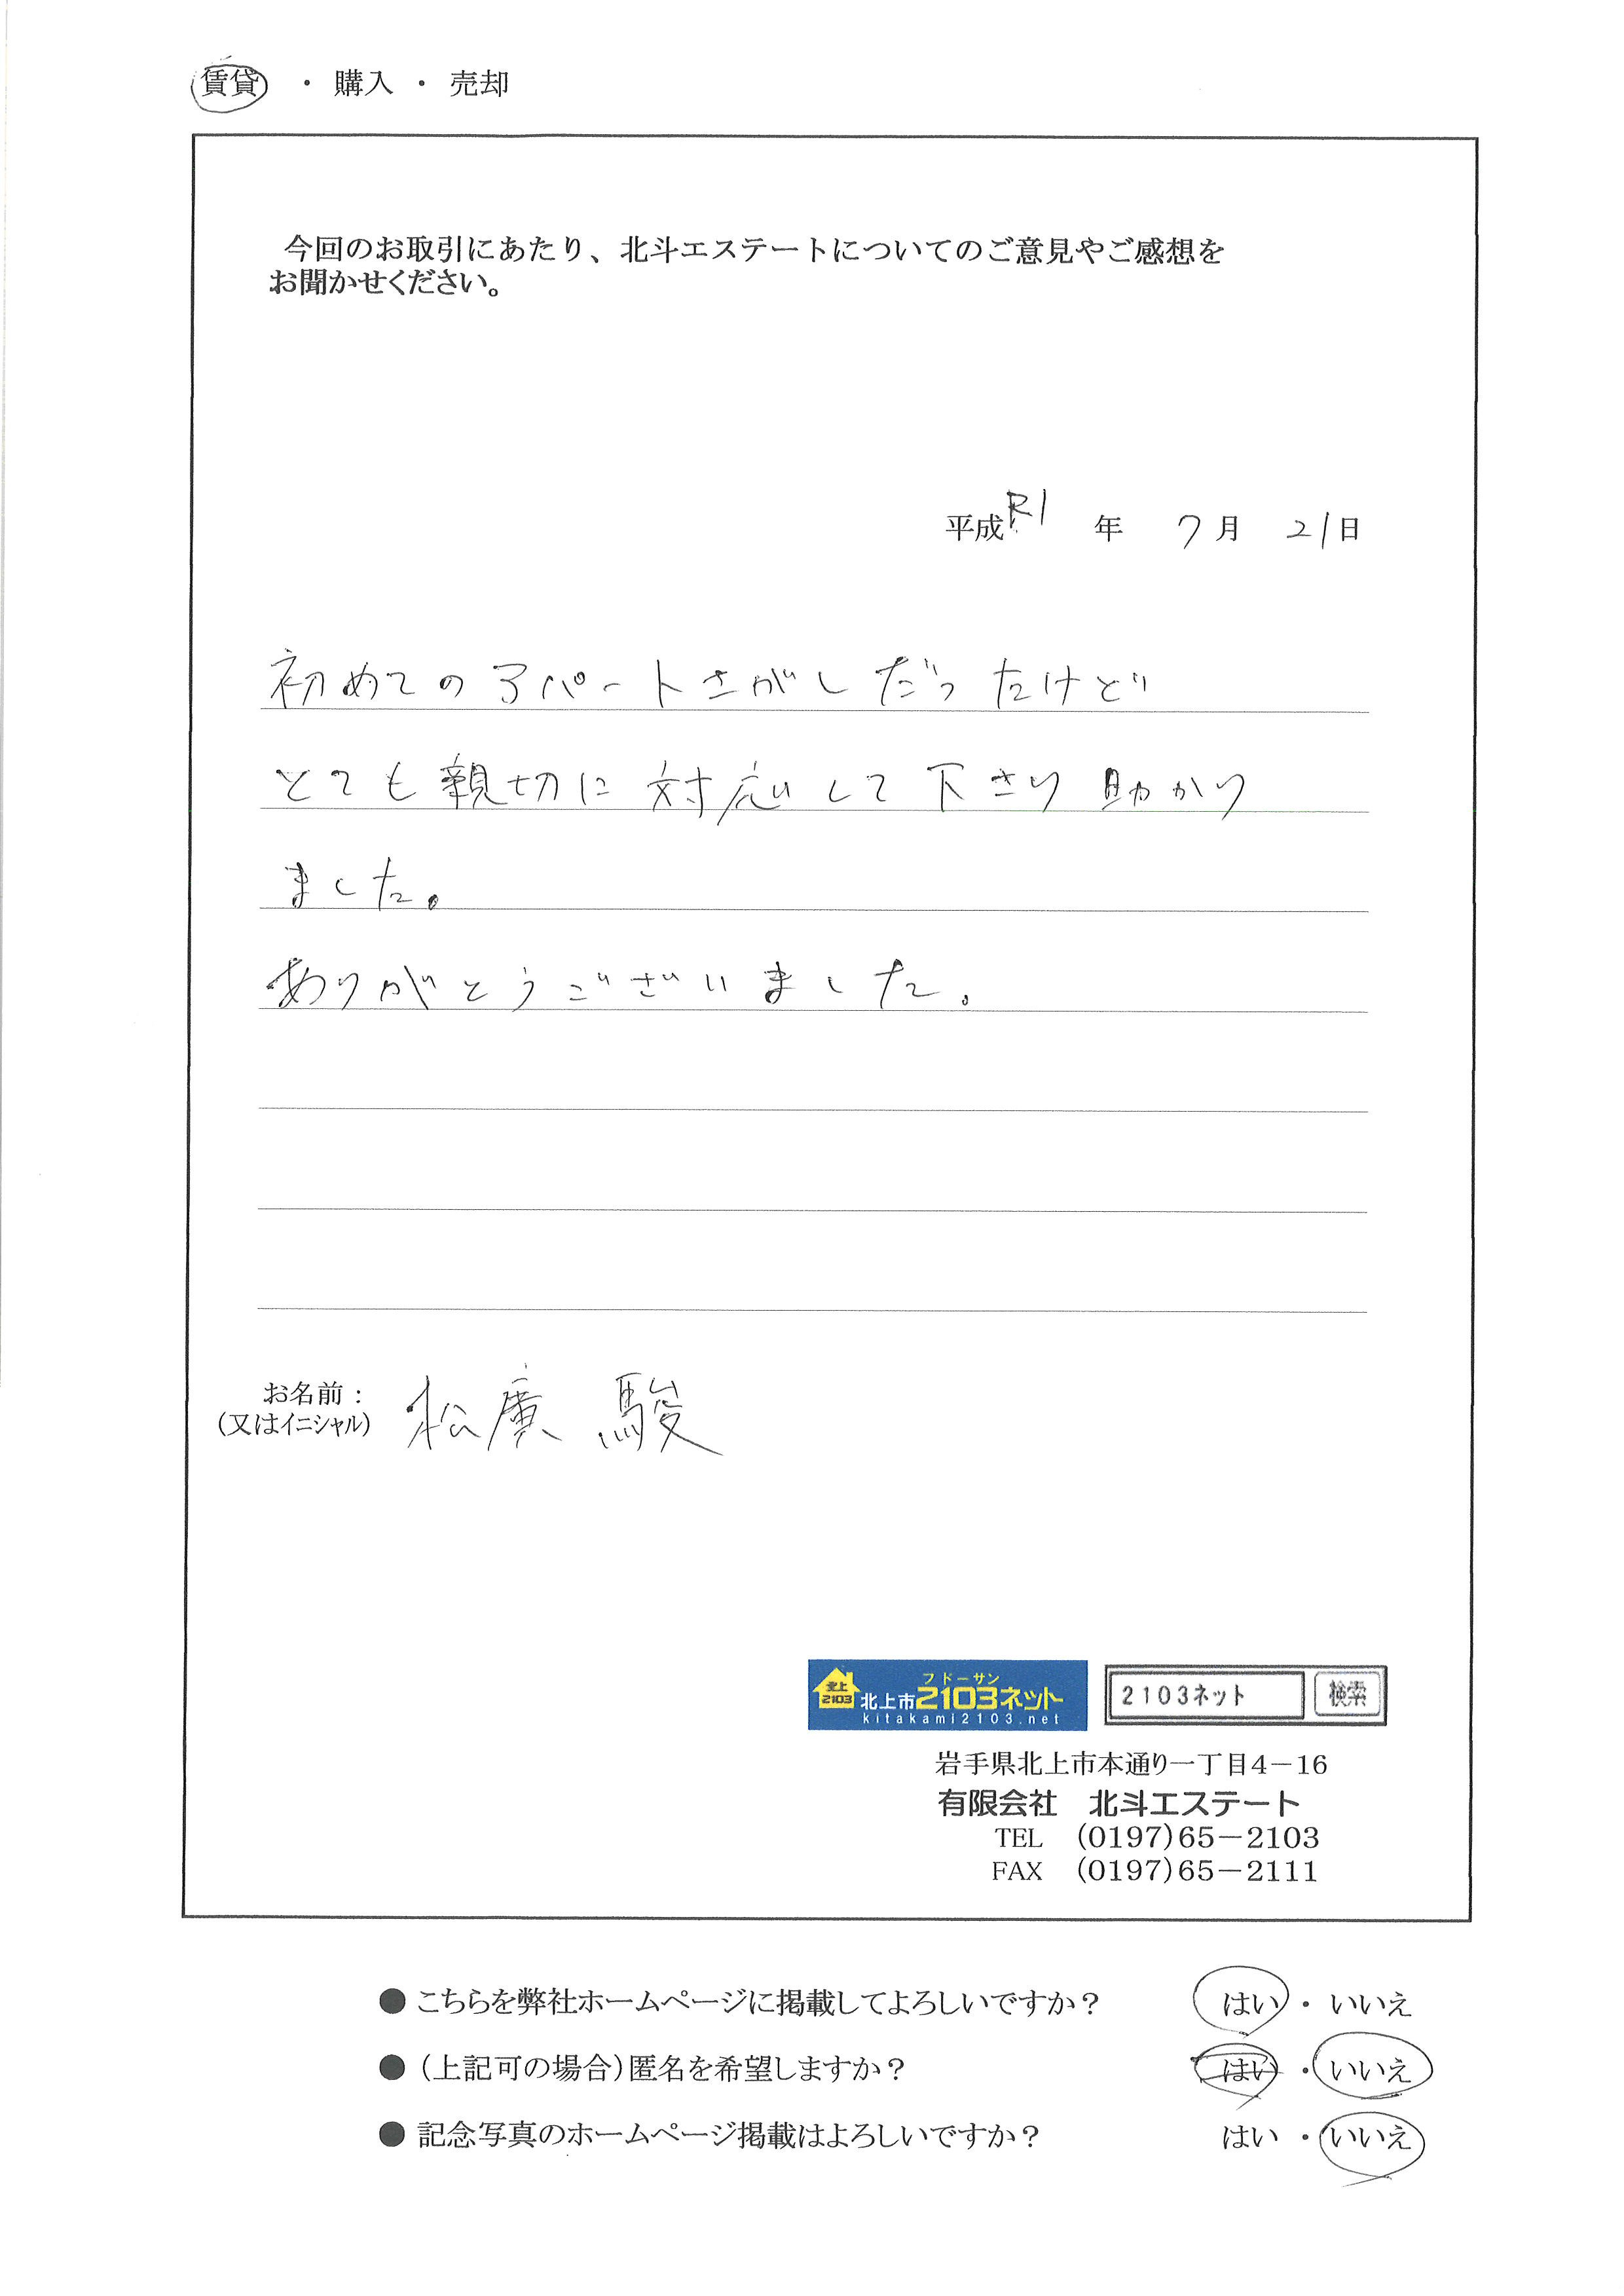 賃貸 ・ 購入 ・ 売却
今回のお取引にあたり、北斗エステートについてのご意見やご感想を
お聞かせください。
平成R1 年 7月 21日
初めてのアパートさがしだったけど
とても親切に対応して下さり助かり
ました。
ありがとうございました。
お名前：
（又はイニシャル） 松廣 駿
フドーサン
北上 2103 北上市2103ネット
kitakami2103.net
2103ネット 検索
岩手県北上市本通り一丁目4－16
有限会社 北斗エステート
TEL （0197）65－2103
FAX （0197）65－2111
● こちらを弊社ホームページに掲載してよろしいですか？ はい ・ いいえ
● （上記可の場合）匿名を希望しますか？ はい ・ いいえ
● 記念写真のホームページ掲載はよろしいですか？ はい ・ いいえ